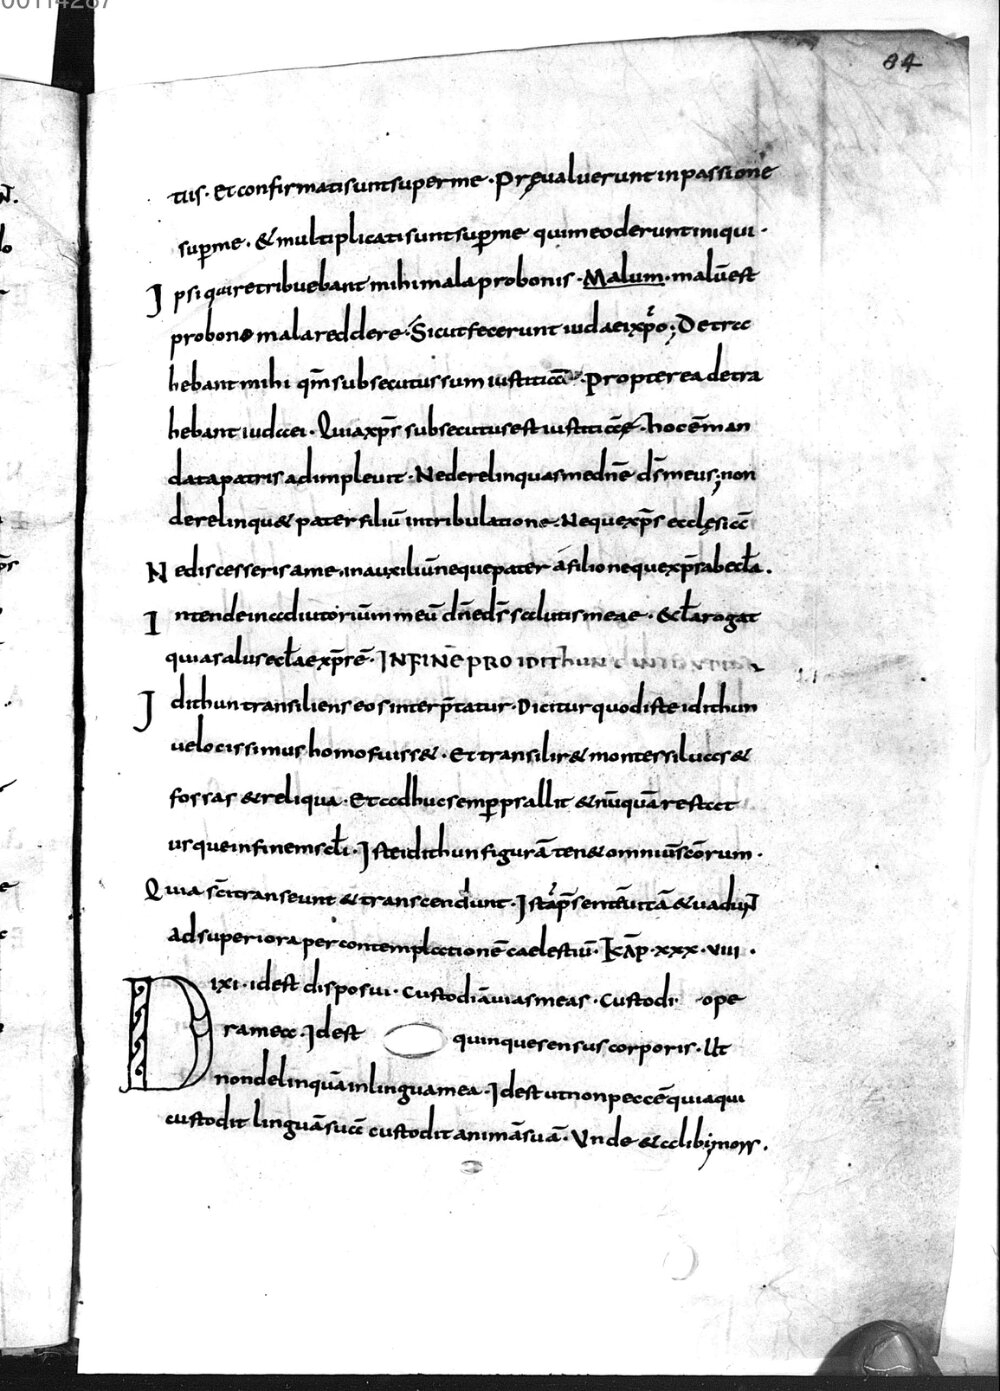 00114287
84
tus · Et confirmati sunt super me · Pręvaluerunt in passione
sup̄ me · & multiplicati sunt sup̄ me qui me oderunt iniqui ·
Ipsi qui retribuebant mihi mala pro bonis · Malum · malū est
pro bono mala reddere · Sicut fecerunt iudaei xp̄o ; Detra
hebant mihi qm̄ subsecutus sum iustitiam · Propterea detra
hebant iudaei · Quia xp̄s subsecutus est iustitiā · hoc ē man
data patris adimplevit · Ne derelinquas me dn̄e ds̄ meus ; non
derelinqu& pater filiū in tribulatione · Neque xp̄s ecclęsia
Ne discesseris a me · in auxiliū neque pater a filio neque xp̄s ab eccła ·
Intende in adiutoriūm meū dn̄e ds̄ salutis meae · & ecła rogat
quia salus ecłae xp̄s ē · IN FINĒ PRO IDITHUN
Idithun transiliens eos interp̄tatur · Dicitur quod iste idithun
velocissimus homo fuiss& · Et transilir& montes silvas &
fossas & reliqua · Et adhuc semp̄ psallit & nūquā restat
usque in finem scłi · Iste idithun figurā ten& omniū sc̄orum ·
Quia sc̄i transeunt & transcendunt · Istā p̄sentē vitā & vadunt
ad superiora per contemplationē caelestiū · KAP̄ · xxx · viii ·
Dixi · id est disposui · Custodiā vias meas · Custodi ope
ra mea · Id est quinque sensus corporis · Ut
non delinquā in lingua mea · Id est ut non peccē quia qui
custodit linguā suā custodit animā suā · Unde & alibi ; mors ·